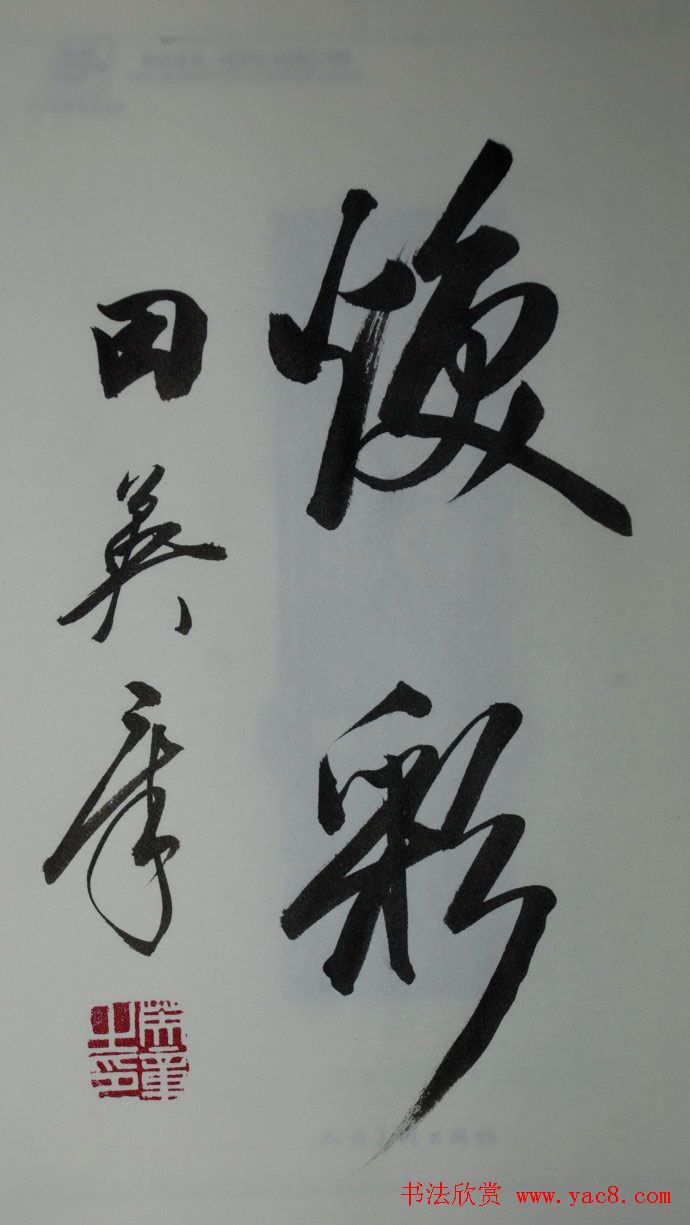 焕彩
田英章
书法欣赏 www.yac8.com